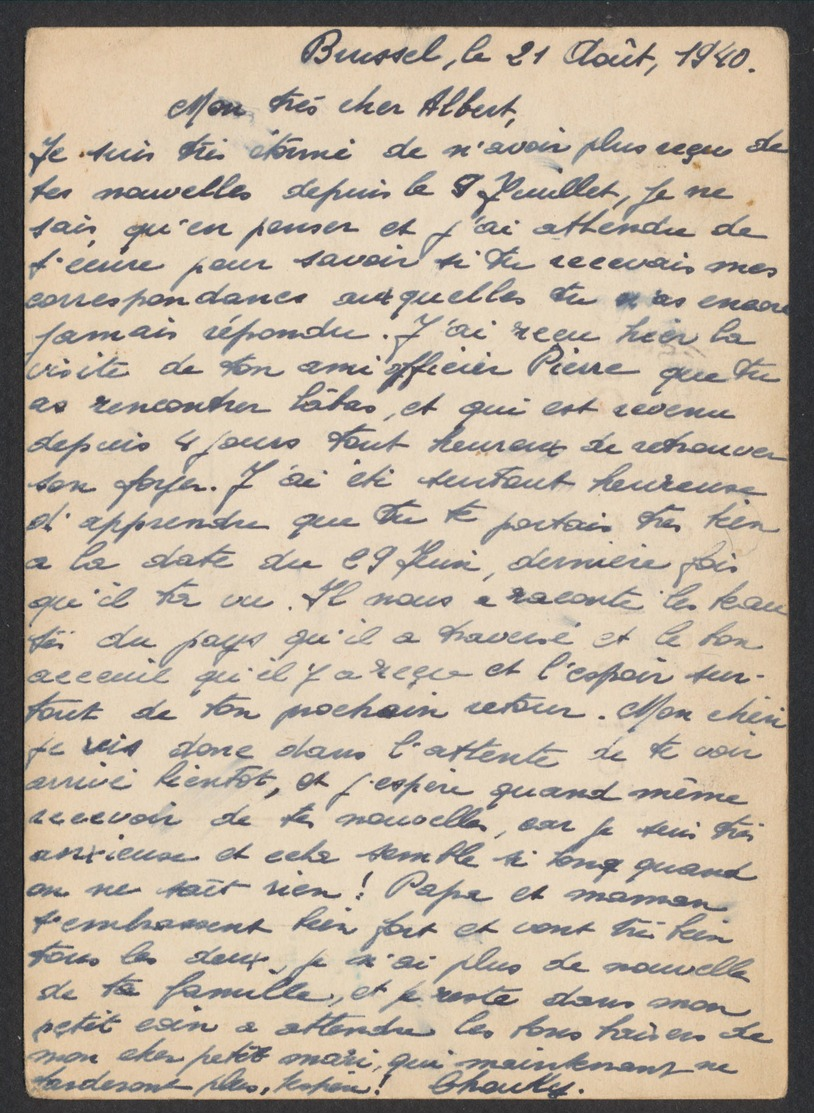 Brussel, le 21 Août, 1940.
Mon très cher Albert,
Je suis très étonné de n'avoir plus reçu de
tes nouvelles depuis le 9 Juillet, je ne
sais qu'en penser et j'ai attendu de
t'écrire pour savoir si tu recevais mes
correspondances auxquelles tu n'as encore
jamais répondu. J'ai reçu hier la
visite de ton ami officier Pierre que tu
as rencontrer labas, et qui est revenu
depuis 4 jours tout heureux de retrouver
son foyer. J'ai été surtout heureuse
d'apprendre que tu te portais très bien
a la date du 29 Juin, dernière fois
qu'il ta vu. Il nous a raconté les beau
tés du pays qu'il a traversé et le bon
acceuil qu'il y a reçu et l'espoir sur-
tout de ton prochain retour. Mon chéri
je vis donc dans l'attente de te voir
arrivé bientôt, et j'espère quand même
recevoir de tes nouvelles, car je suis très
anxieuse et cela semble si long quand
on ne sait rien! Papa et maman
t'embrassent bien fort et vont très bien
tous les deux, je n'ai plus de nouvelle
de ta famille, et je reste dans mon
petit coin a attendre les bons baisers de
mon cher petit mari, qui maintenant ne
tarderont plus, !